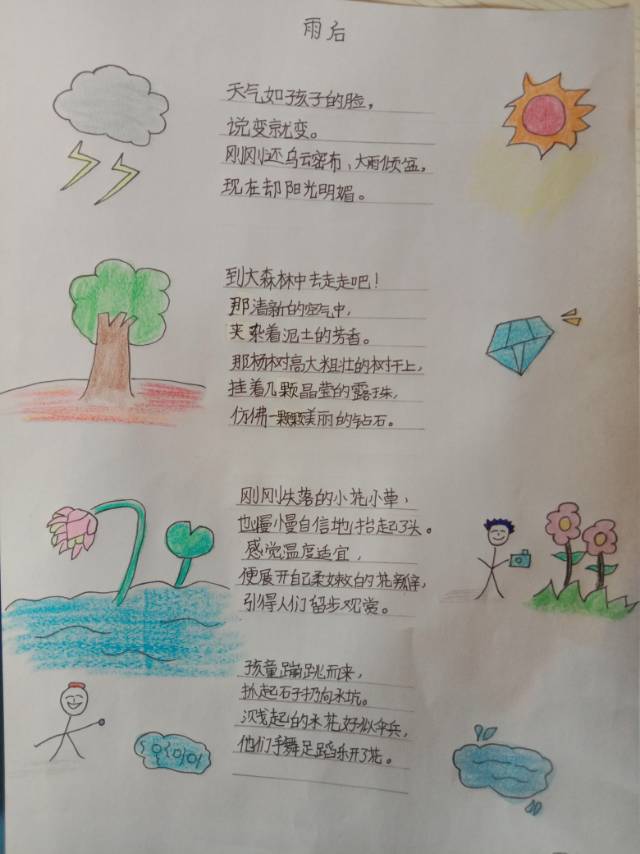 雨后
天气如孩子的脸，
说变就变。
刚刚还乌云密布、大雨倾盆，
现在却阳光明媚。
到大森林中去走走吧！
那清新的空气中，
夹杂着泥土的芳香。
那杨树高大粗壮的树干上，
挂着几颗晶莹的露珠，
仿佛一颗颗美丽的钻石。
刚刚失落的小花小草，
也慢慢自信地抬起了头。
感觉温度适宜，
便展开自己柔嫩的花瓣，
引得人们留步观赏。
孩童蹦跳而来，
扒起石子扔向水坑。
溅起的水花好似伞兵，
他们手舞足蹈乐开了花。